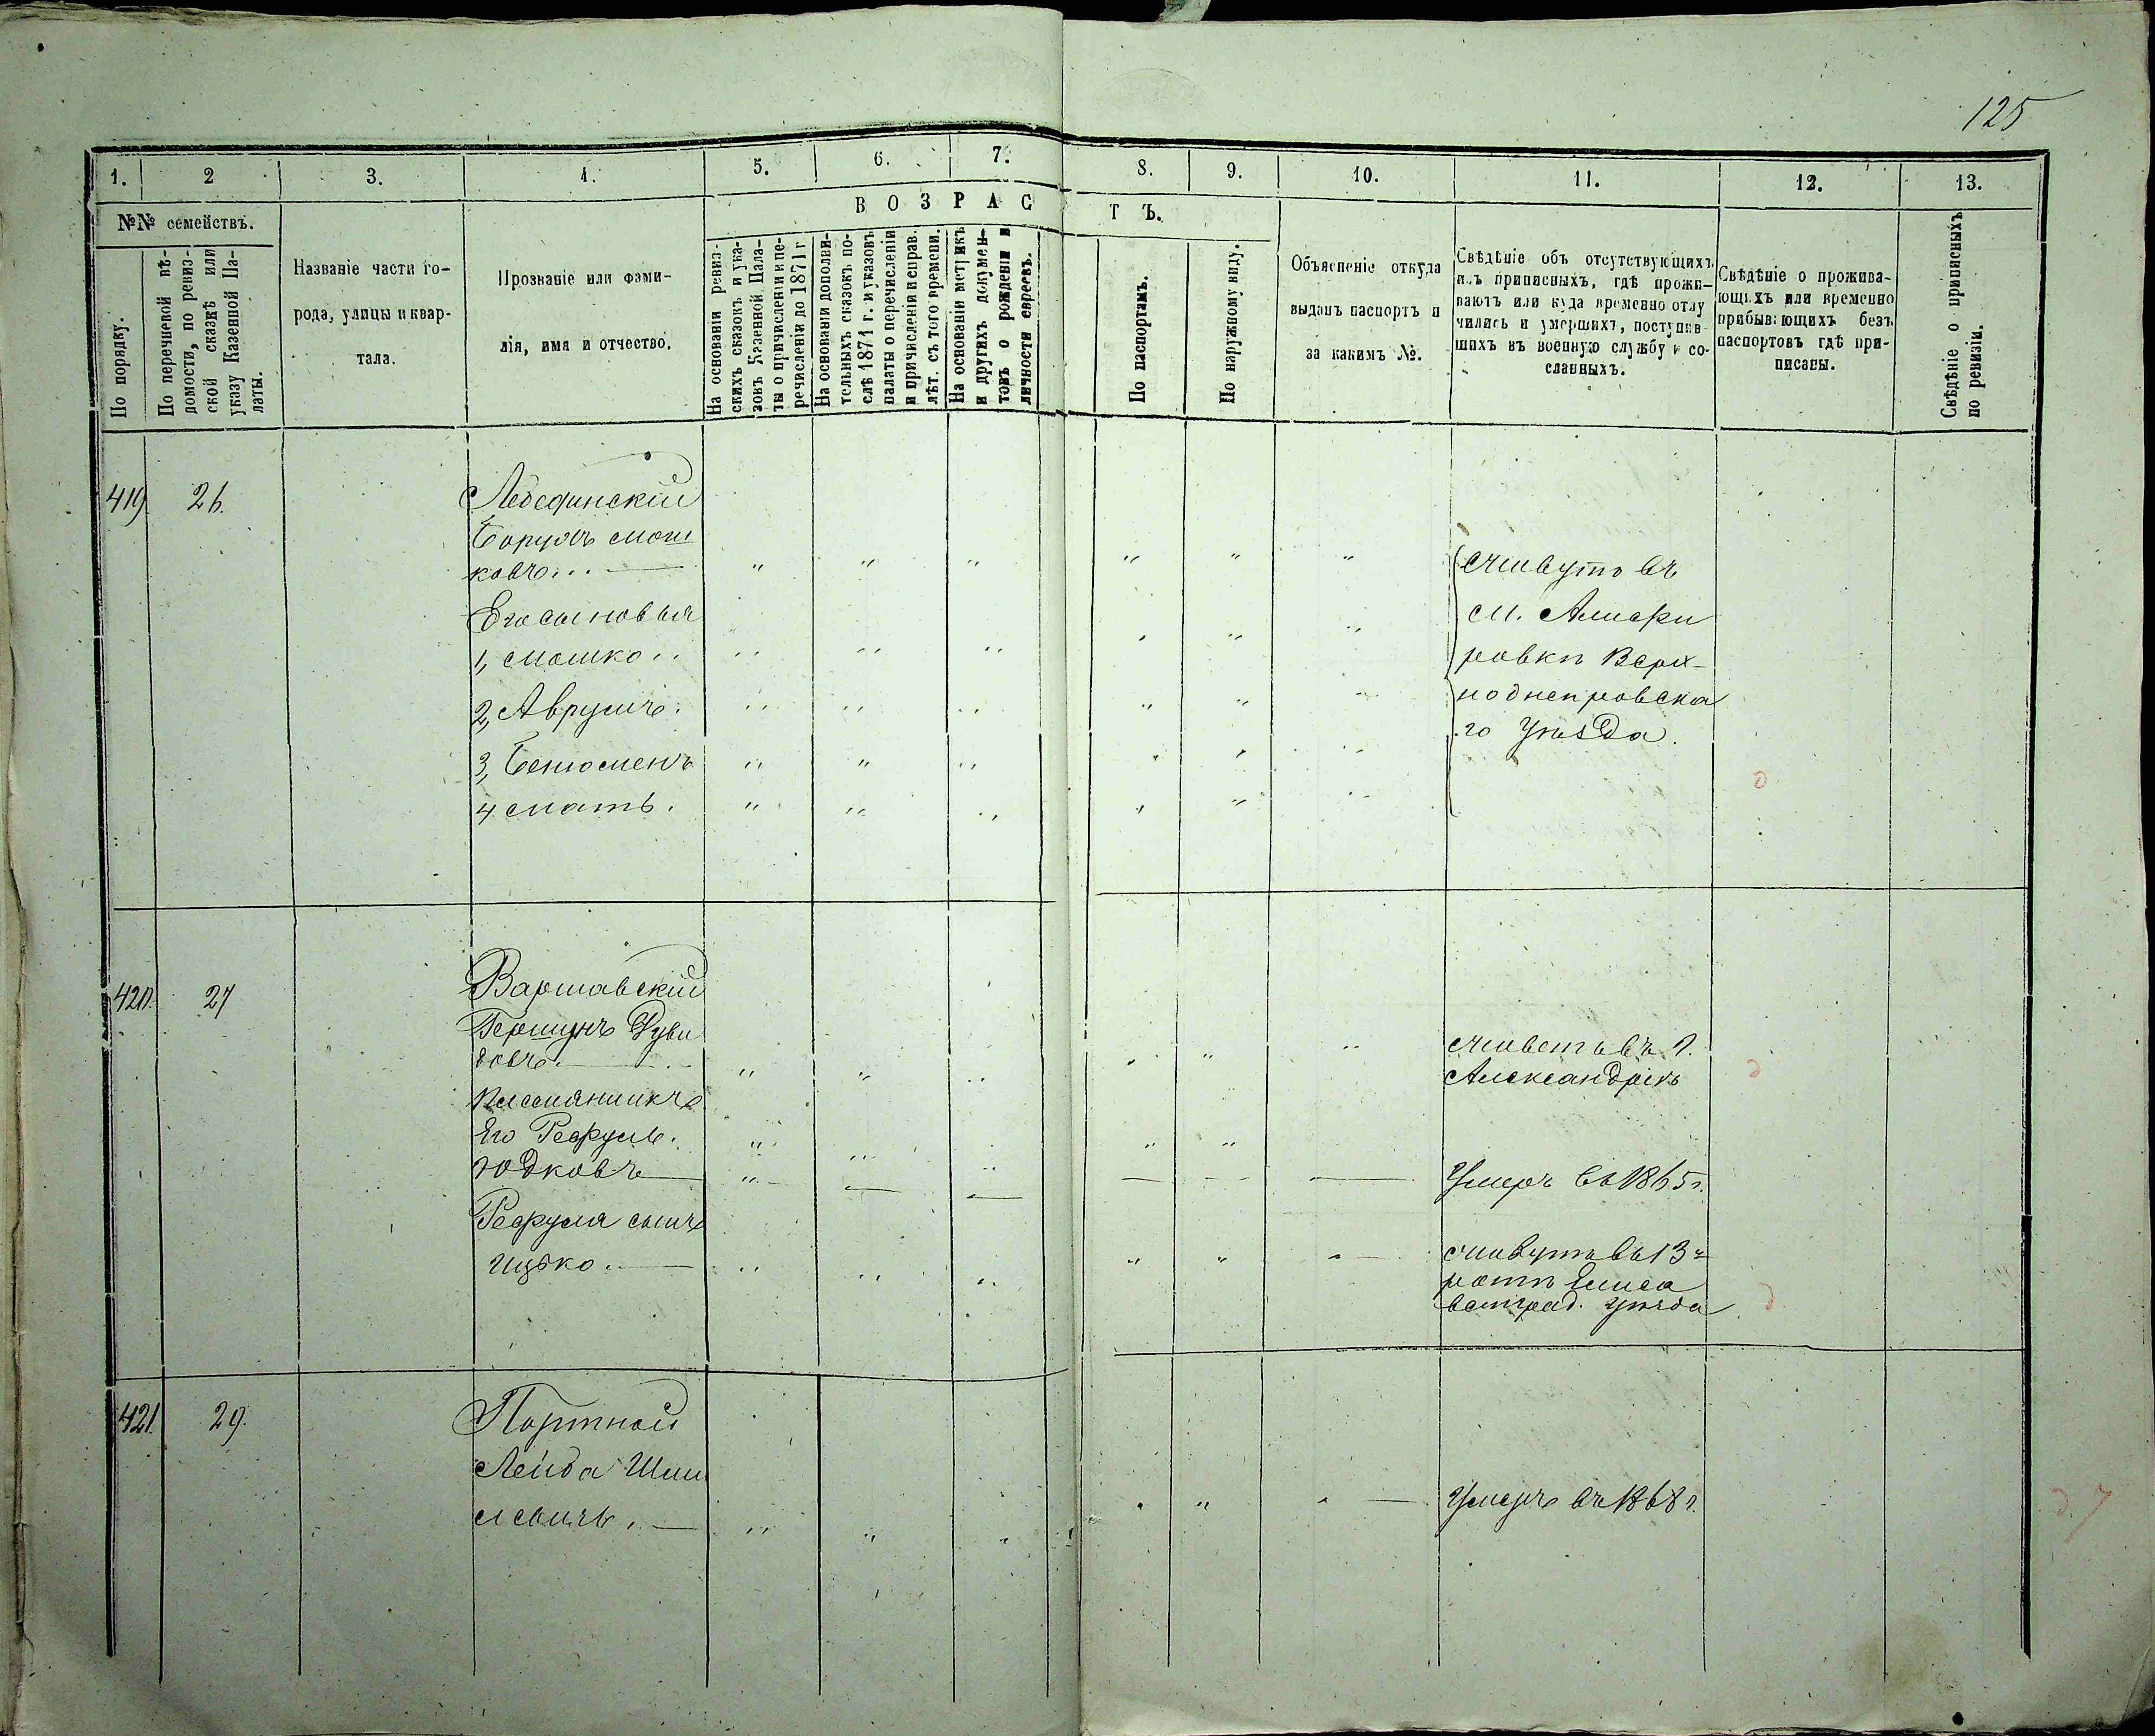 125
1. 2 3. 4. 5. 6. 7. 8. 9. 10. 11. 12. 13.
№№ семействъ.
ВОЗРАСТЪ.
По порядку.
По перечневой вѣ-
домости, по ревиз-
ской сказкѣ или
указу Казенной Па-
латы.
Названіе части го-
рода, улицы и квар-
тала.
Прозваніе или фами-
лія, имя и отчество.
На основаніи ревиз-
скихъ сказокъ и ука-
зовъ Казенной Пала-
ты о причисленіи и пе-
речисленіи до 1871 г
На основаніи дополни-
тельныхъ сказокъ по-
слѣ 1871 г. и указовъ
палаты о перечисленіи
и причисленіи и справ.
лѣт. съ того времени.
На основаніи метрикъ
и другихъ докумен-
товъ о рожденіи и
личности евреевъ.
По паспортамъ.
По наружному виду.
Объясненіе откуда
выданъ паспортъ и
за какимъ №.
Свѣдѣніе объ отсутствующихъ
изъ приписныхъ, гдѣ прожи-
ваютъ или куда временно отлу
чились и умершихъ, поступив-
шихъ въ военную службу и со-
сланныхъ.
Свѣдѣніе о прожива-
ющихъ или временно
прибывающихъ безъ
паспортовъ гдѣ при-
писаны.
Свѣдѣніе о приписныхъ
по ревизіи.
419 26.
Лебединскій
Борухъ Мош
ковъ...
Его сыновья
1, Мошко..
2, Аврумъ.
3, Бенюменъ
4 Мать.
Живутъ въ
м.
ровки Верх-
ноднепровска
го Уѣзда.
420. 27
Варшавскій
Гершунъ Дуви
довъ.
Племянникъ
Его Рефуль.
Юдковъ
Рефуля сынъ
Ицько.
Живетъ въ г.
Александріи
Умеръ въ 1865 г.
Живутъ въ 13й
роти Елиса
ветград. уѣзда
421. 29.
Портной
Лейба Шми
левичъ.
Умеръ въ 1868 г.